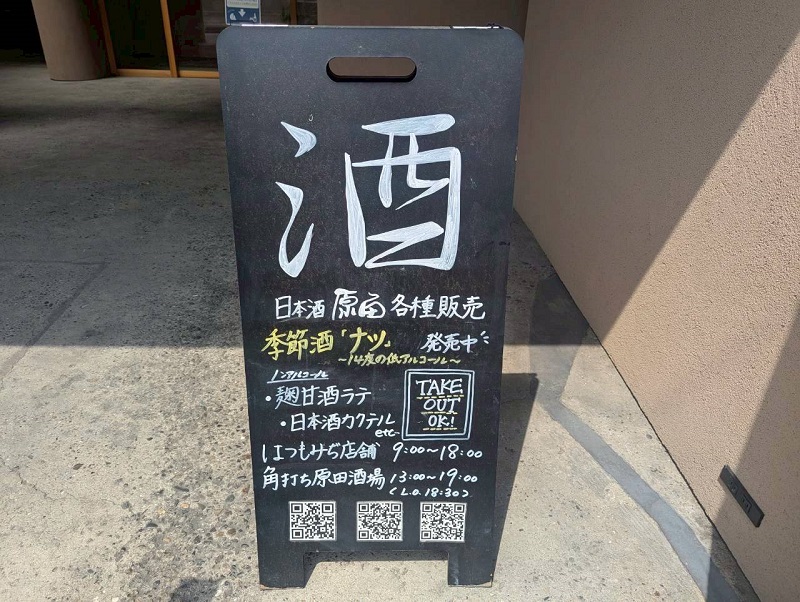 酒
日本酒 原田 各種販売
季節酒「ナツ」 発売中
～14度の低アルコール～
ノンアルコール
・麹甘酒ラテ
・日本酒カクテル
etc-
TAKE
OUT
OK!
はつもみぢ店舗 9:00～18:00
角打ち原田酒場 13:00～19:00
(L.O.18:30)